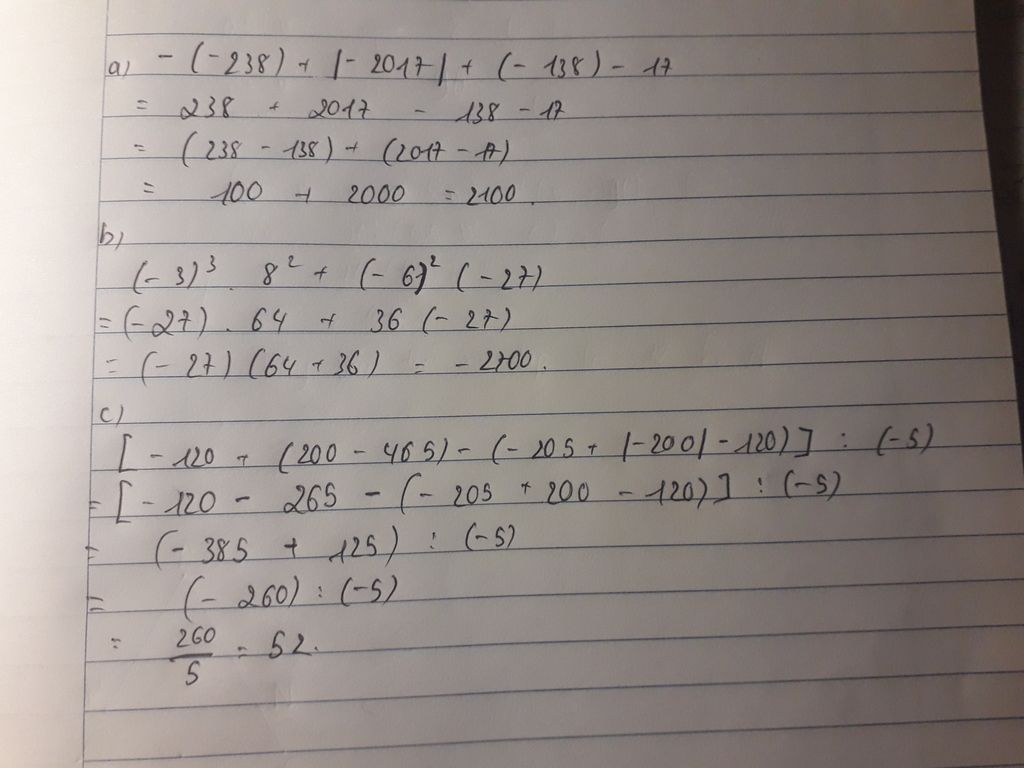 a) - (-238) + |-2017| + (-138) - 17
= 238 + 2017 - 138 - 17
= (238 - 138) + (2017 - 17)
= 100 + 2000 = 2100.
b)
(-3)³ . 8² + (-6)² (-27)
= (-27) . 64 + 36 (-27)
= (-27) (64 + 36) = -2700.
c)
[-120 + (200 - 465) - (-205 + |-200| - 120)] : (-5)
= [-120 - 265 - (-205 + 200 - 120)] : (-5)
= (-385 + 125) : (-5)
= (-260) : (-5)
= 260/5 = 52.